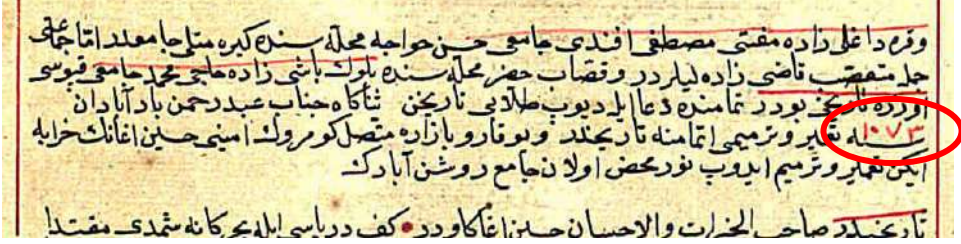 وقره داغلى زاده مفتى مصطفى افندى جامعى حسن خواجه محله سنده كبره مثلى جامعدر اما جماعتى
جمله متعصب قاضى زاده ليلردر وقصاب خضر محله سنده بلوك باشى زاده حاجى محمد جامعى قپوسى
اوزره تاريخ بودر تمامنده دعا ايله ديوب طلابى تاريخن ثناكاه جناب عبدرحمن باد آبادان
سنه ١٠٧٣ تعمير وترميمى اتمامنه تاريخدر ويوقارو بازاره متصل كومروك امينى حسين اغانك خرابه
ايكن تعمير وترميم ايدوب نور محض اولان جامع روشن آبادك
تاريخيدر صاحب الخيرات والاحسان حسين اغا كاودر كف درياسى ايله يحر كانه شمدى مقتدا